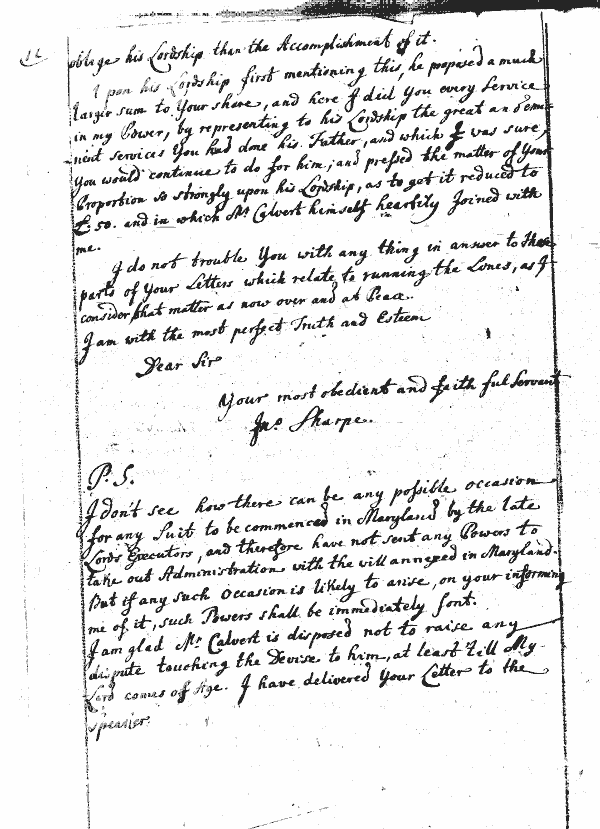 oblige his Lordship than the Accomplishment of it.
Upon his Lordship first mentioning this, he proposed a much
larger sum to Your share, and here I did You every Service
in my Power, by representing to his Lordship the great and Emi-
nent services You had done his Father, and which I was sure,
You would continue to do for him; and pressed the matter of Your
Proportion so strongly upon his Lordship, as to got it reduced to
£. 50. and in which Mr. Calvert himself heartily Joined with
me.
I do not trouble You with any thing in answer to those
parts of Your Letters which relate to running the Lines, as I
consider that matter as now over and at Peace.
I am with the most perfect Truth and Esteem
Dear Sir
Your most obedient and faithful Servant
Jno. Sharpe.
P. S.
I don't see how there can be any possible occasion
for any Suit to be commenced in Maryland by the late
Lords Executors, and therefore have not sent any Powers to
take out Administration with the will annexed in Maryland.
But if any such Occasion is likely to arise, on your informing
me of it, such Powers shall be immediately sent.
I am glad Mr. Calvert is disposed not to raise any
dispute touching the Devise to him, at least till My
Lord comes of Age. I have delivered Your Letter to the
Speaker.